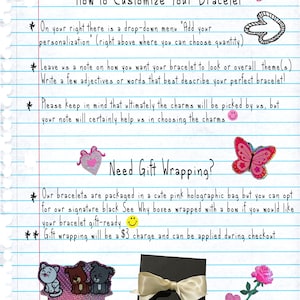 How to Customize Your Bracelet
* On your right there is a drop-down menu "Add your
personalization" (right above where you can choose quantity)
* Leave us a note on how you want your bracelet to look or overall theme(s).
Write a few adjectives or words that best describe your perfect bracelet!
* Please keep in mind that ultimately the charms will be picked by us, but
your note will certainly help us in choosing the charms
Need Gift Wrapping?
* Our bracelets are packaged in a cute pink holographic bag but you can opt
for our signature black See Why boxes wrapped with a bow if you would like
your bracelet gift-ready
** Gift wrapping will be a $3 charge and can be applied during checkout